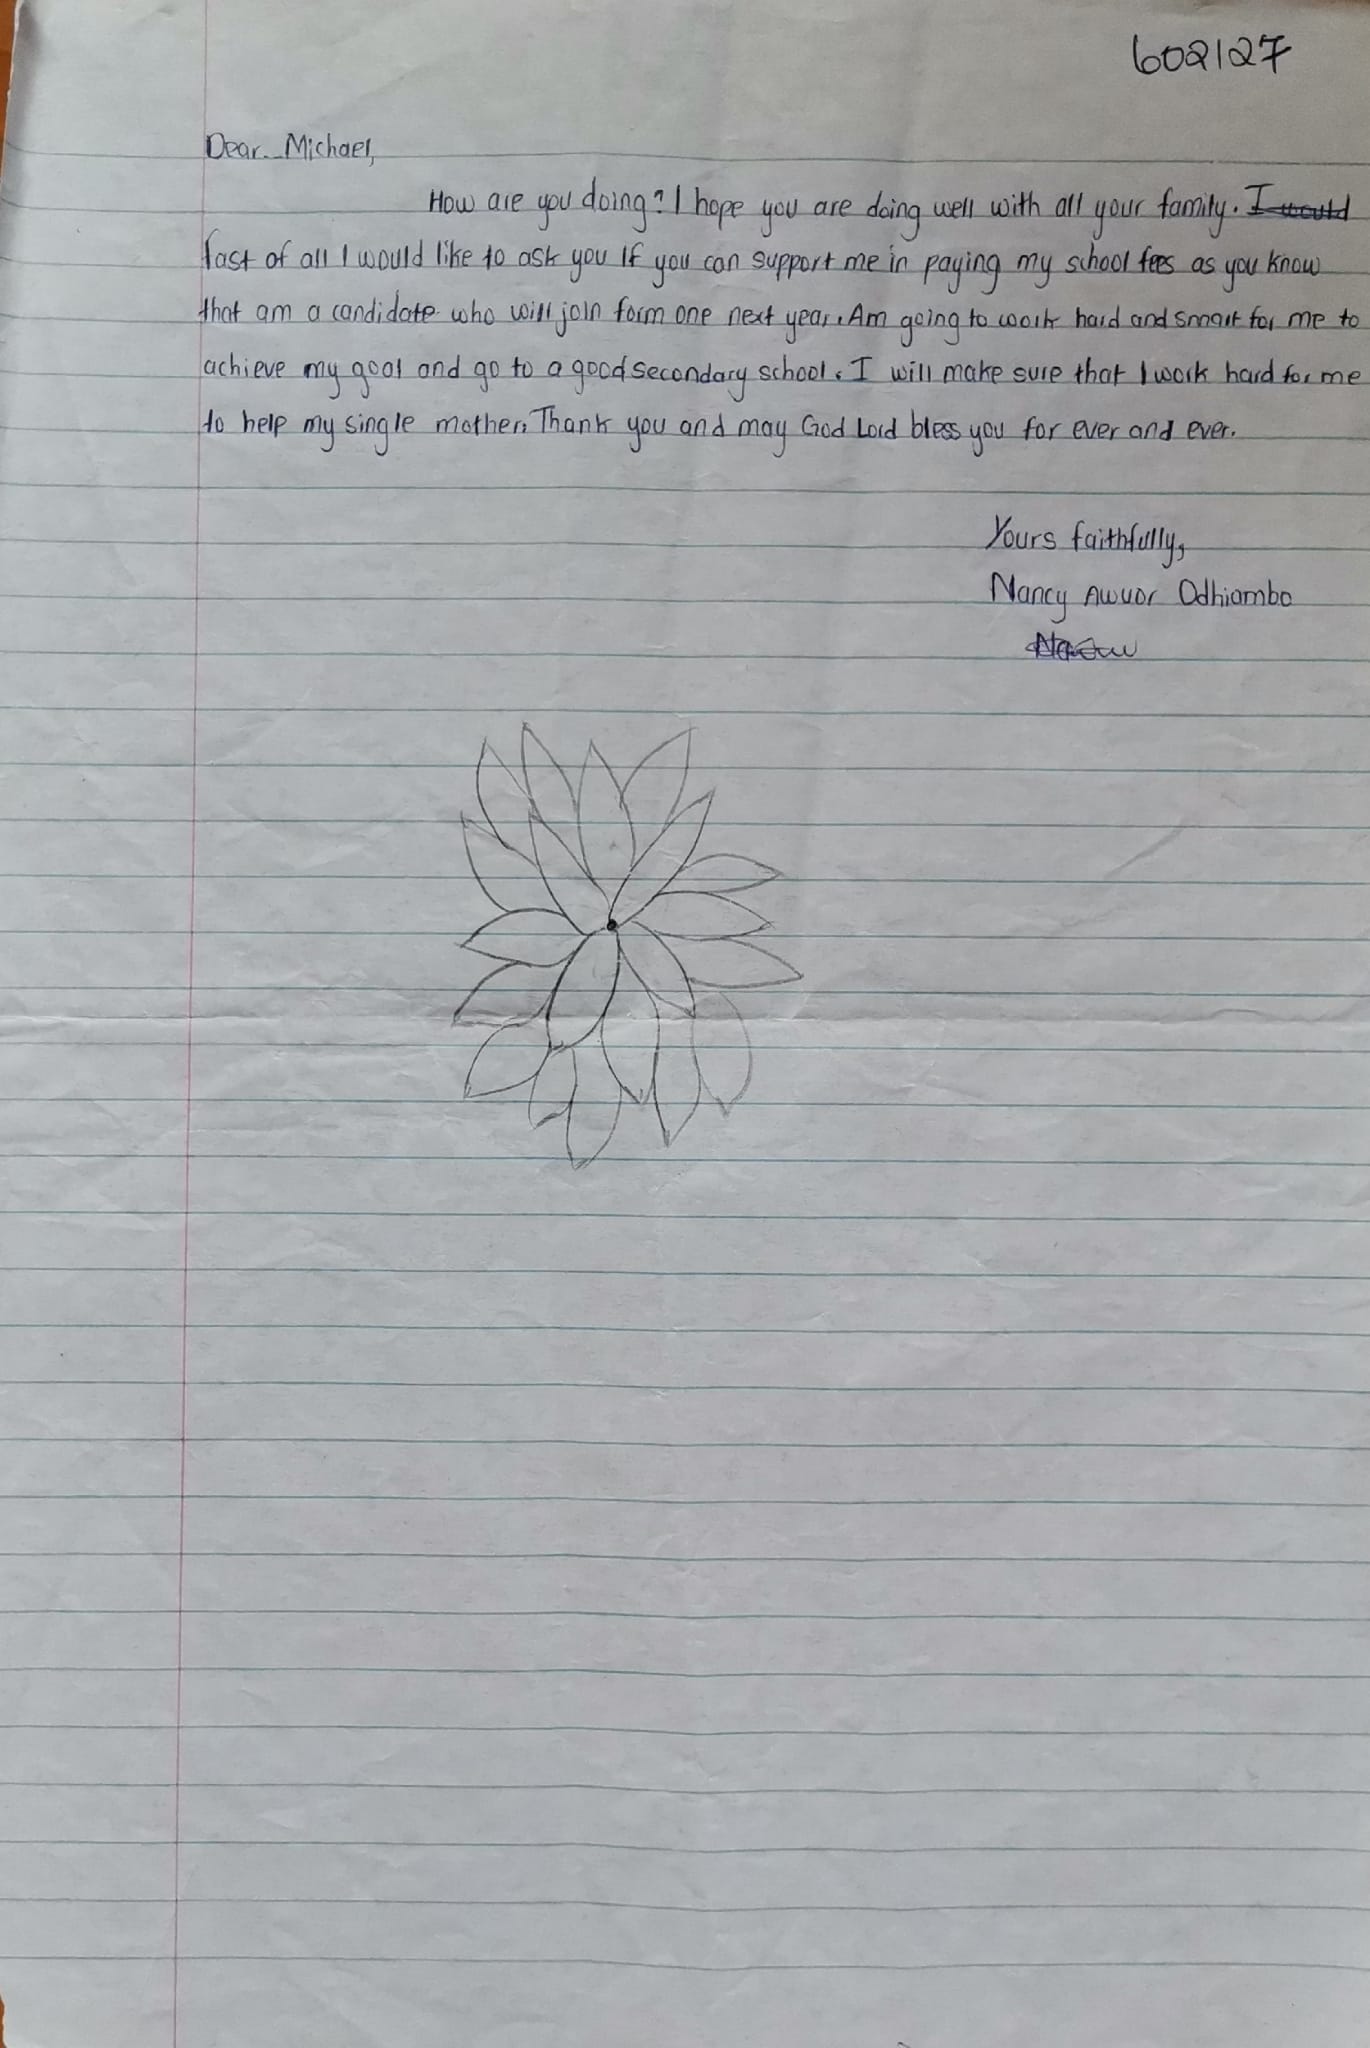 602127
Dear.. Michael,
How are you doing? I hope you are doing well with all your family. I would
fast of all I would like to ask you if you can support me in paying my school fees as you know
that am a candidate who will join form one next year. Am going to work hard and smart for me to
achieve my goal and go to a good secondary school. I will make sure that I work hard for me
to help my single mother. Thank you and may God Lord bless you for ever and ever.
Yours faithfully,
Nancy Awuor Odhiambo